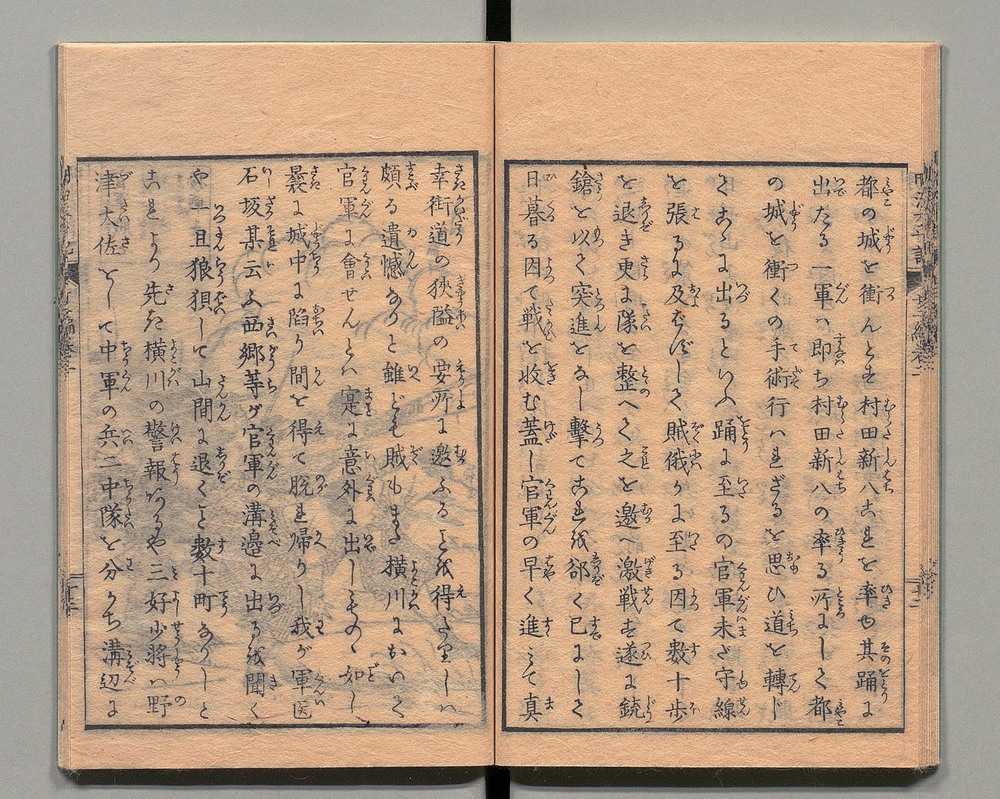 都の城を衝んとす村田新八これを率ゆ其踊に
出たる一軍ハ即ち村田新八の率る所にして都
の城を衝くの手術行ハれざるを思ひ道を轉じ
てこゝに出るといふ踊に至るの官軍未だ守線
を張るに及ばずして賊俄かに至る因て数十歩
を退き更に隊を整へて之を邀へ激戦す遂に銃
鎗を以て突進をなし撃てこれを郤く已にして
日暮る因て戦を收む蓋し官軍の早く進みて真
幸街道の狹隘の要所に邀ふるを得ざりしハ
頗る遺憾なりと雖ども賊もまた横川において
官軍に會せんとハ寔に意外に出しものゝ如し
曩に城中に陷り間を得て脱れ帰りし我が軍医
石坂某云ふ西郷等が官軍の溝邉に出るを聞く
や一旦狼狽して山間に退くこと數十町なりしと
これより先き横川の警報いたるや三好少将ハ野
津大佐をして中軍の兵二中隊を分かち溝辺に